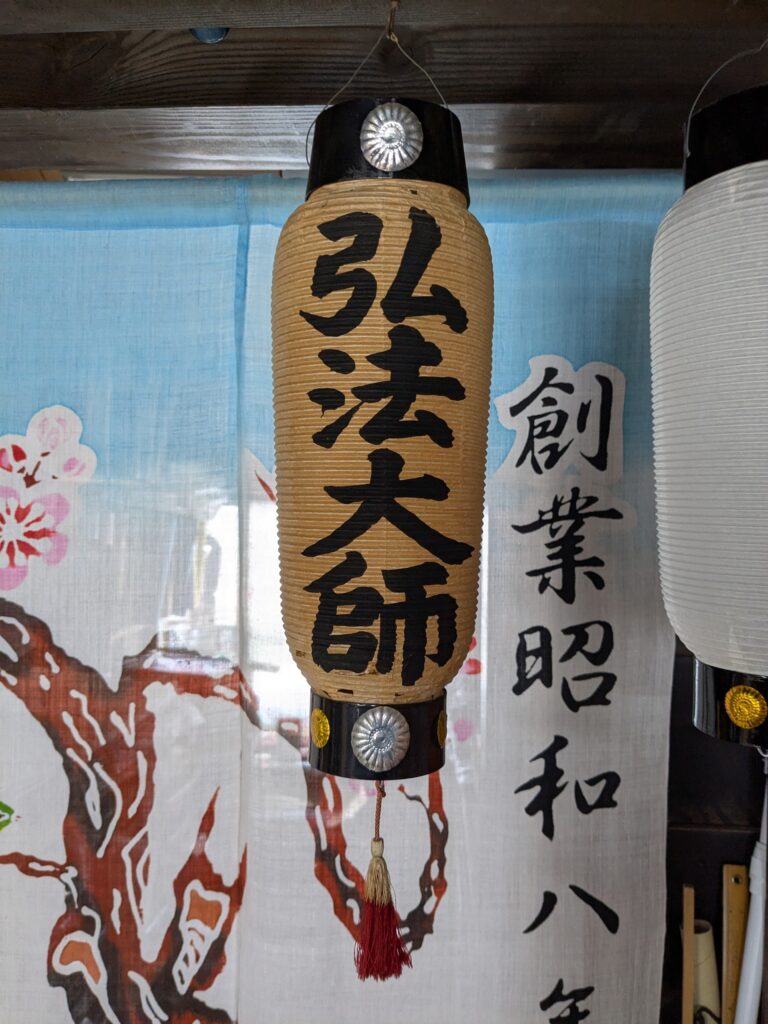 弘法大師
創業昭和八年